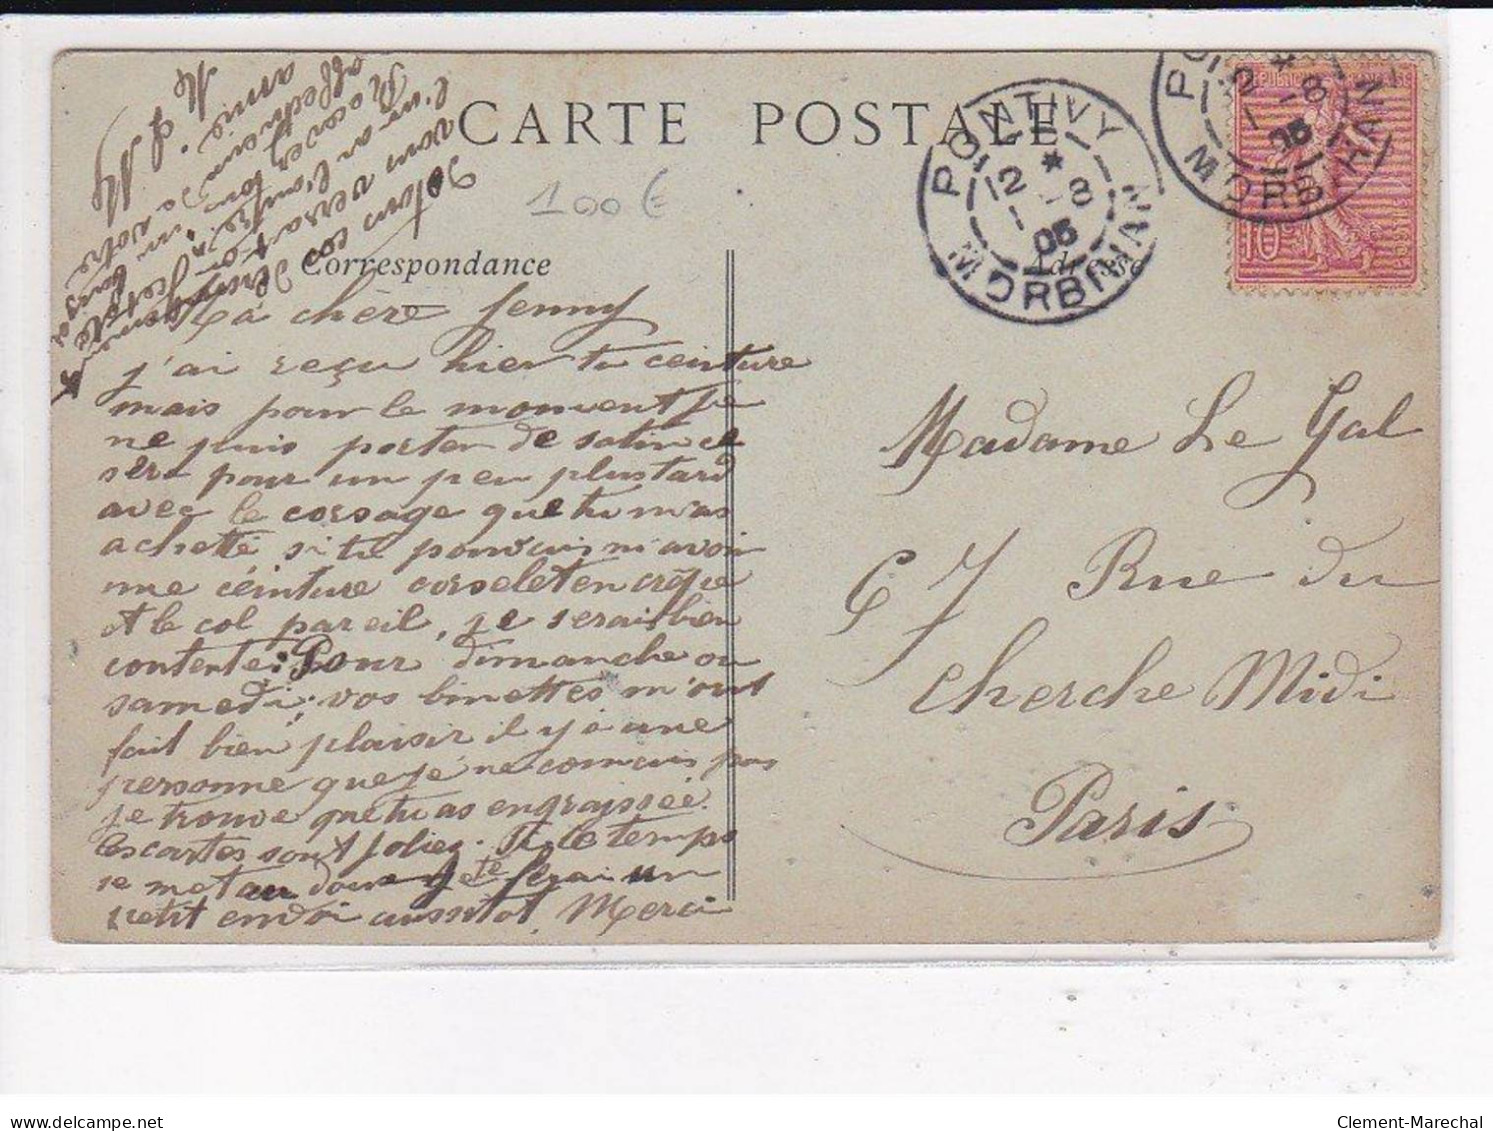 CARTE POSTALE
100 €
PONTIVY
12 * 8
05
MORBIHAN
12 * 8
05
MORBIHAN
10c
Correspondance
Ma chère Jenny
j'ai reçu hier ta ceinture
mais pour le moment je
ne puis porter de satin ce
sera pour un peu plus tard
avec le corsage que tu m'as
acheté si tu pouvais m'avoir
une ceinture corselet en crêpe
et le col pareil, je serais bien
contente. Pour dimanche ou
samedi; vos binettes m'ont
fait bien plaisir il y a une
personne que je ne connais pas
je trouve que tu as engraissée.
les cartes sont jolies. Si le temps
se met au doux je te ferai un
petit envoi aussitôt. Merci
l'un
vous verser
Recevez
affection
votre
amie
M L M
Madame Le Gal
67 Rue du
Cherche Midi
Paris
Clement-Marechal
www.delcampe.net